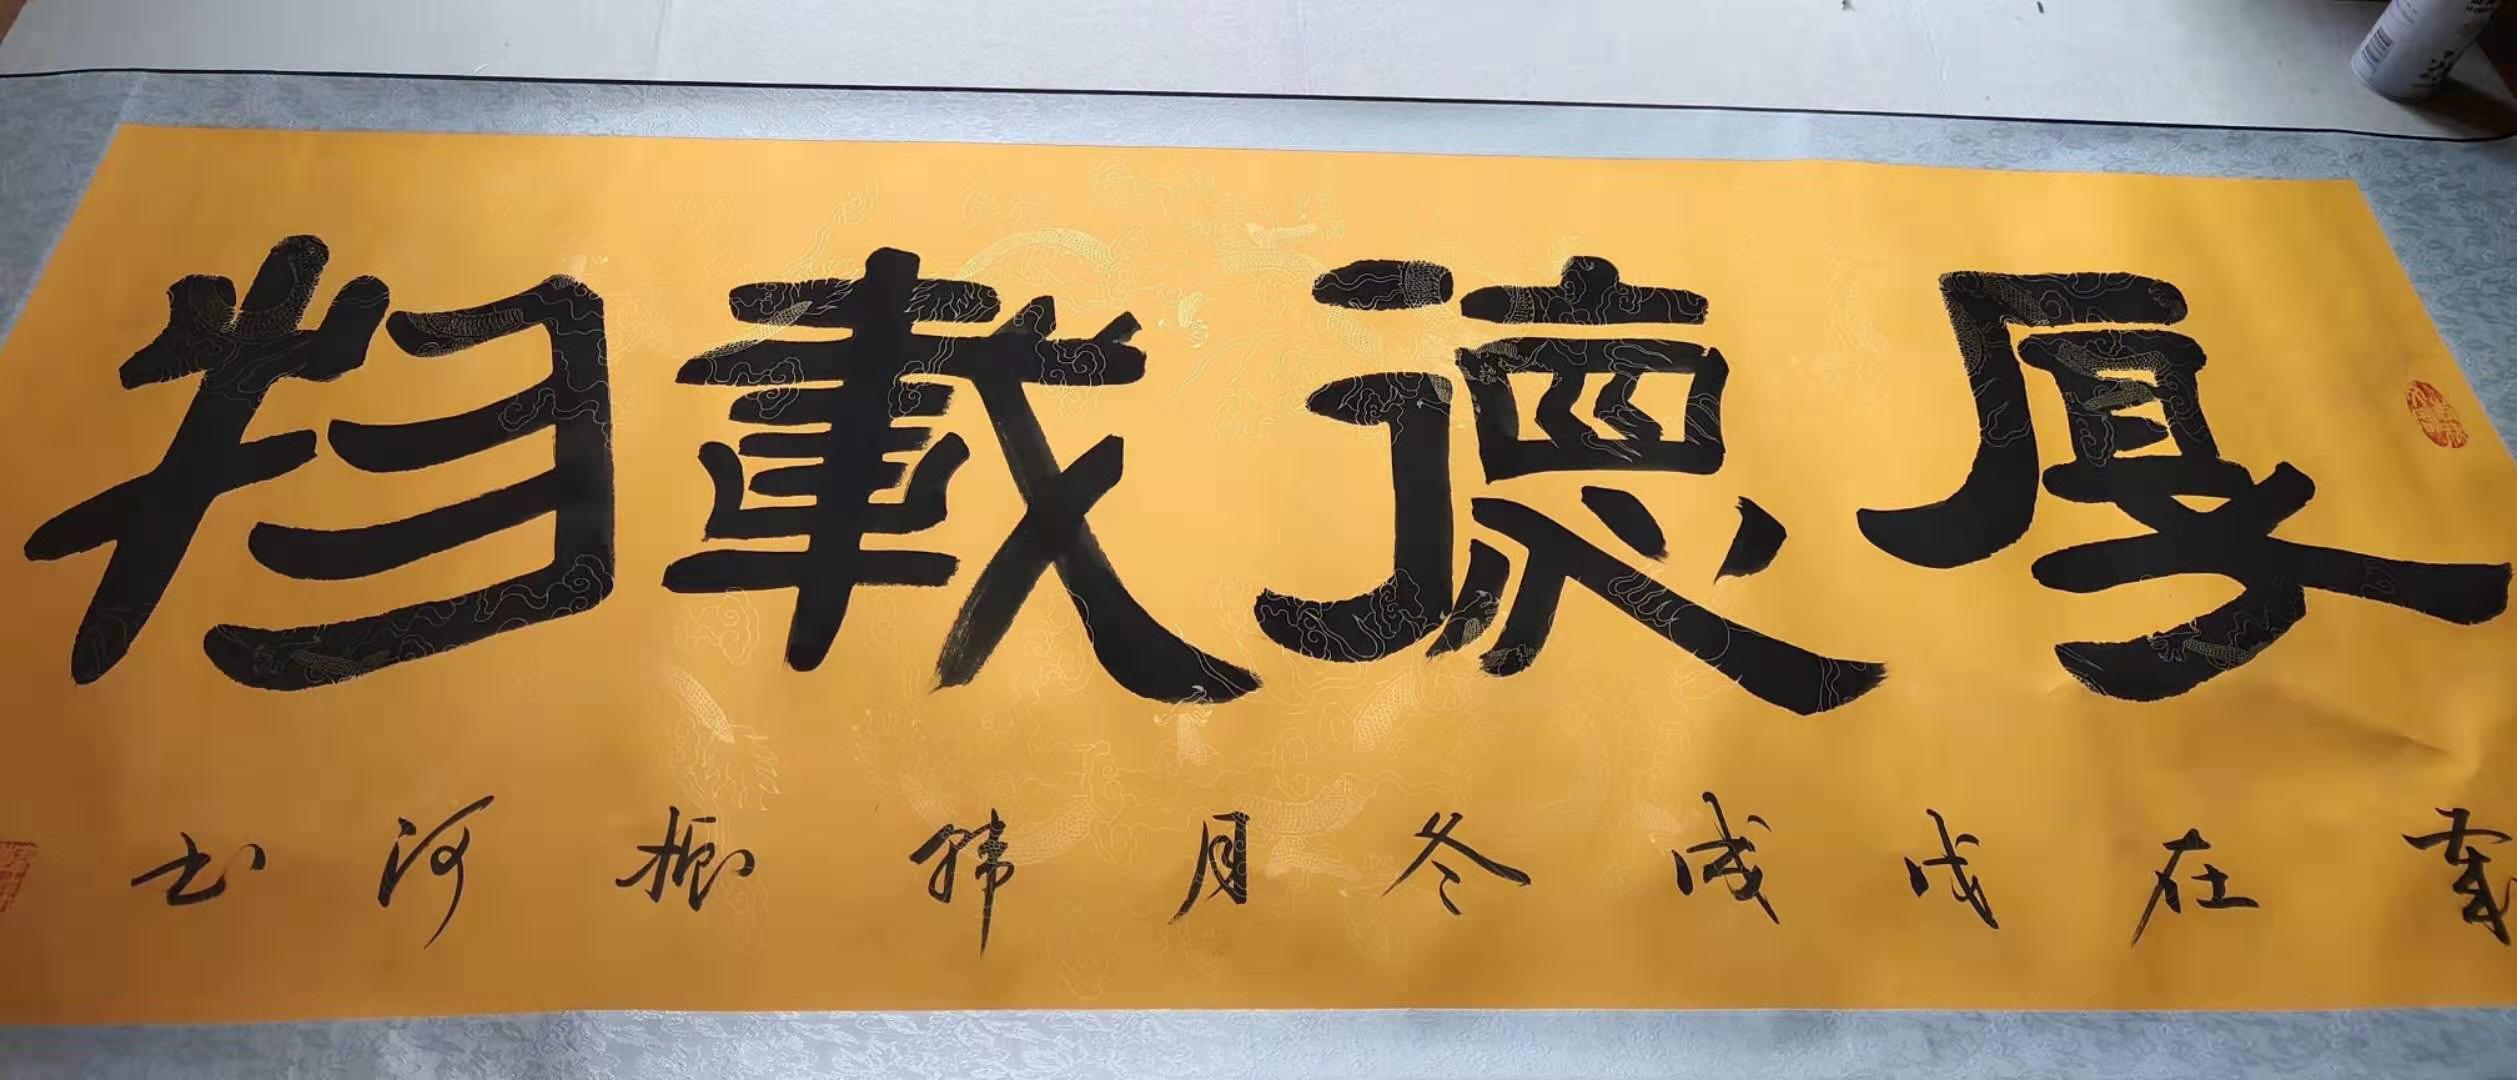 厚德載物
歲在戊戌冬月韓振河书